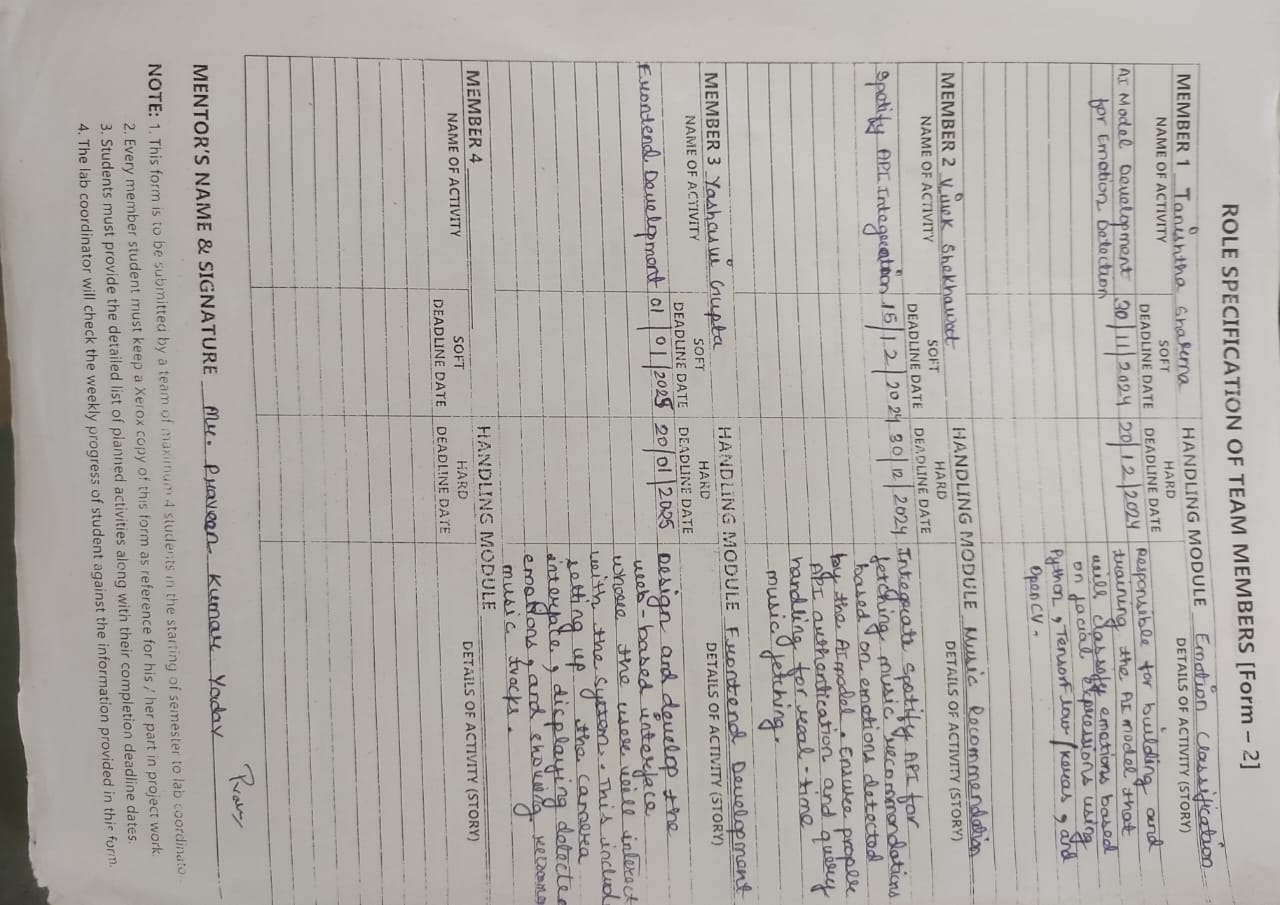 ROLE SPECIFICATION OF TEAM MEMBERS [Form - 2]
MEMBER 1 Tanishtha Sharma HANDLING MODULE Emotion Classification
NAME OF ACTIVITY SOFT DEADLINE DATE HARD DEADLINE DATE DETAILS OF ACTIVITY (STORY)
AI Model Development 30/11/2024 20/12/2024 Responsible for building and
for Emotion Detection training the AI model that
will classify emotions based
on facial expressions using
Python, Tensorflow/Keras, and
OpenCV.
MEMBER 2 Vivek Shekhawat HANDLING MODULE Music Recommendation
NAME OF ACTIVITY SOFT DEADLINE DATE HARD DEADLINE DATE DETAILS OF ACTIVITY (STORY)
Spotify API Integration 15/12/2024 30/12/2024 Integrate Spotify API for
fetching music recommendations
based on emotions detected
by the AI model. Ensure proper
API authentication and query
handling for real-time
music fetching.
MEMBER 3 Yashasvi Gupta HANDLING MODULE Frontend Development
NAME OF ACTIVITY SOFT DEADLINE DATE HARD DEADLINE DATE DETAILS OF ACTIVITY (STORY)
Frontend Development 01/01/2025 20/01/2025 Design and develop the
web-based interface
where the user will interact
with the system. This includ
setting up the camera
interface, displaying detecte
emotions, and showing recomme
music tracks.
MEMBER 4 HANDLING MODULE
NAME OF ACTIVITY SOFT DEADLINE DATE HARD DEADLINE DATE DETAILS OF ACTIVITY (STORY)
MENTOR'S NAME & SIGNATURE Mr. Praveen Kumar Yadav
NOTE: 1. This form is to be submitted by a team of maximum 4 students in the starting of semester to lab coordinator.
2. Every member student must keep a Xerox copy of this form as reference for his / her part in project work.
3. Students must provide the detailed list of planned activities along with their completion deadline dates.
4. The lab coordinator will check the weekly progress of student against the information provided in this form.